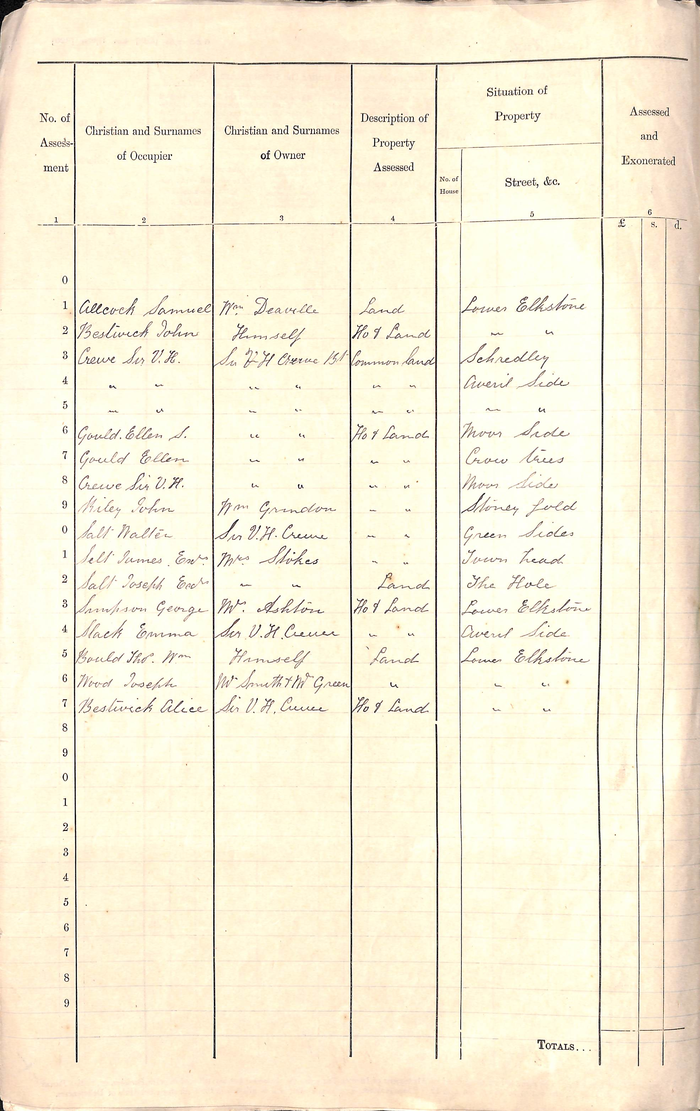 No. of Assess-ment | Christian and Surnames of Occupier | Christian and Surnames of Owner | Description of Property Assessed | Situation of Property | Assessed and Exonerated
No. of House | Street, &c.
1 | 2 | 3 | 4 | 5 | 6
£ | s. | d.
0
1 Allcock Samuel | Wm Deaville | Land | Lower Elkstone
2 Bestwick John | Himself | Ho & Land | " "
3 Crewe Sir V. H. | Sir V H Crewe Bt | Common Land |
4 " " | " " | " " | Averil Side
5 " " | " " | " " | " "
6 Gould Ellen S. | " " | Ho & Land | Moor Side
7 Gould Ellen | " " | " " | Crow trees
8 Crewe Sir V. H. | " " | " " | Moor Side
9 Riley John | Wm Grindon | " " | Stoney fold
0 Salt Walter | Sir V. H. Crewe | " " | Green Sides
1 Salt James Exrs | Mrs Stokes | " " | Town head
2 Salt Joseph Exrs | " " | Land | The Hole
3 Simpson George | Mr. Ashton | Ho & Land | Lower Elkstone
4 Slack Emma | Sir V. H. Crewe | " " | Averil Side
5 Bould Thos. Wm | Himself | Land | Lower Elkstone
6 Wood Joseph | Mr Smith & Mr Green | " | " "
7 Bestwick Alice | Sir V. H. Crewe | Ho & Land | " "
8
9
0
1
2
3
4
5
6
7
8
9
Totals...